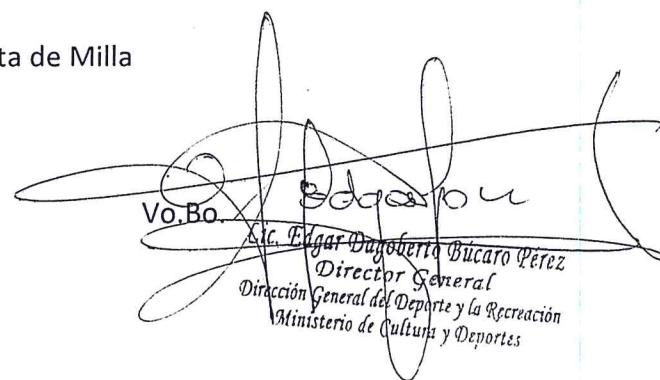 ta de Milla
Vo.Bo.
Lic. Edgar Dagoberto Búcaro Pérez
Director General
Dirección General del Deporte y la Recreación
Ministerio de Cultura y Deportes